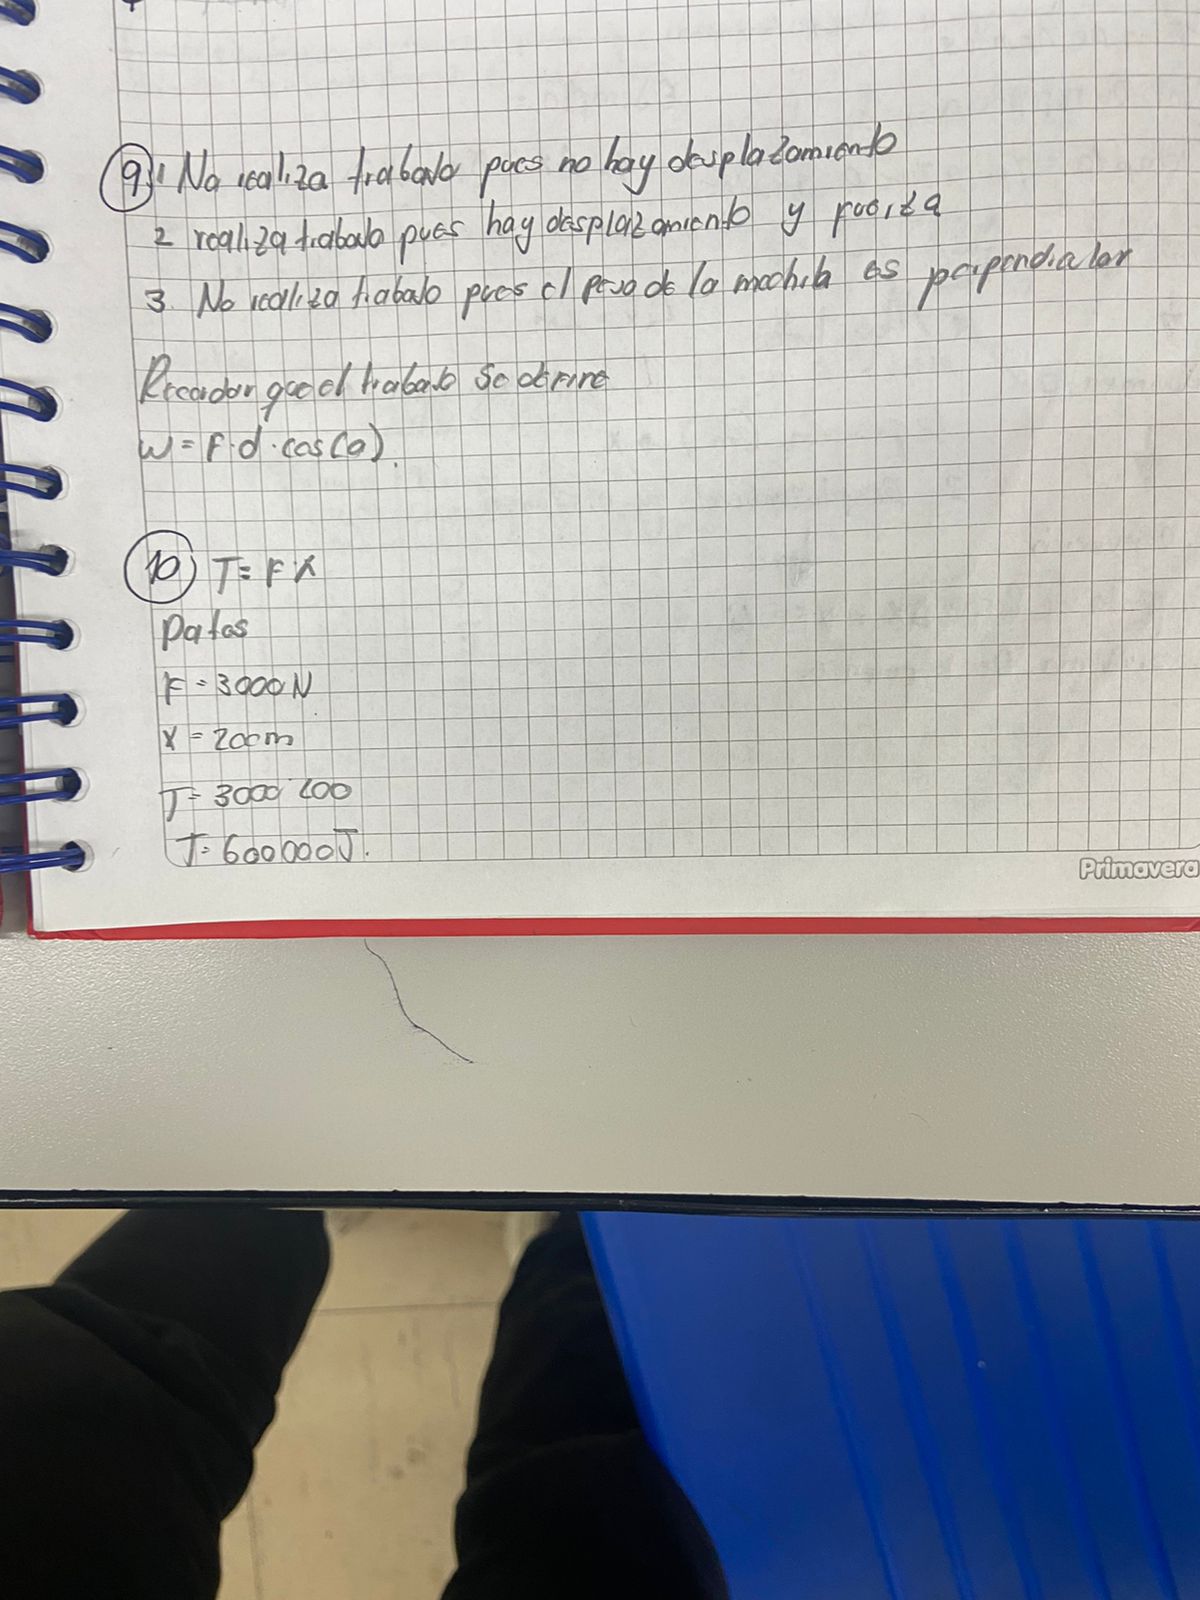 9) 1 No realiza trabajo pues no hay desplazamiento
2 realiza trabajo pues hay desplazamiento y fuerza
3. No realiza trabajo pues el peso de la mochila es perpendicular
Recordar que el trabajo se define
W = F·d·cos(a).
10) T = F X
Datos
F = 3000N
X = 200m
T = 3000 200
T = 600000J.
Primavera